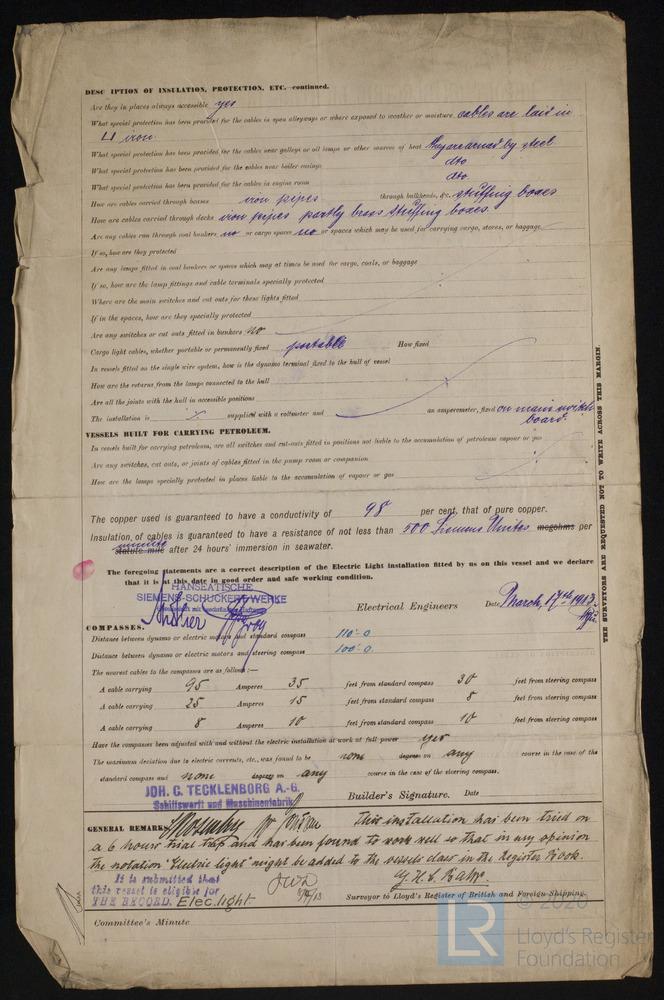 DESC IPTION OF INSULATION, PROTECTION, ETC.—continued.
Are they in places always accessible yes
What special protection has been provided for the cables in open alleyways or where exposed to weather or moisture cables are laid in
iron
What special protection has been provided for the cables near galleys or oil lamps or other sources of heat they are armed by steel
What special protection has been provided for the cables near boiler casings dto
What special protection has been provided for the cables in engine room dto
How are cables carried through beams iron pipes through bulkheads, &c. stuffing boxes
How are cables carried through decks iron pipes partly brass stuffing boxes.
Are any cables run through coal bunkers no or cargo spaces no or spaces which may be used for carrying cargo, stores, or baggage
If so, how are they protected
Are any lamps fitted in coal bunkers or spaces which may at times be used for cargo, coals, or baggage
If so, how are the lamp fittings and cable terminals specially protected
Where are the main switches and cut outs for these lights fitted
If in the spaces, how are they specially protected
Are any switches or cut outs fitted in bunkers no
Cargo light cables, whether portable or permanently fixed portable How fixed
In vessels fitted on the single wire system, how is the dynamo terminal fixed to the hull of vessel
How are the returns from the lamps connected to the hull
Are all the joints with the hull in accessible positions
The installation is supplied with a voltmeter and an amperemeter, fixed on main switch
board.
VESSELS BUILT FOR CARRYING PETROLEUM.
In vessels built for carrying petroleum, are all switches and cut-outs fitted in positions not liable to the accumulation of petroleum vapour or gas
Are any switches, cut outs, or joints of cables fitted in the pump room or companion
How are the lamps specially protected in places liable to the accumulation of vapour or gas
The copper used is guaranteed to have a conductivity of 98 per cent. that of pure copper.
Insulation of cables is guaranteed to have a resistance of not less than 500 Siemens Unites megohms per
minute
statute mile after 24 hours' immersion in seawater.
The foregoing statements are a correct description of the Electric Light installation fitted by us on this vessel and we declare
that it is at this date in good order and safe working condition.
HANSEATISCHE
SIEMENS-SCHUCKERTWERKE
Electrical Engineers Date March, 17th 1913.
COMPASSES.
Distance between dynamo or electric motors and standard compass 110'-0
Distance between dynamo or electric motors and steering compass 100'-0
The nearest cables to the compasses are as follows:—
A cable carrying 95 Amperes 35 feet from standard compass 30 feet from steering compass
A cable carrying 25 Amperes 15 feet from standard compass 8 feet from steering compass
A cable carrying 8 Amperes 10 feet from standard compass 10 feet from steering compass
Have the compasses been adjusted with and without the electric installation at work at full power yes
The maximum deviation due to electric currents, etc., was found to be none degrees on any course in the case of the
standard compass and none degrees on any course in the case of the steering compass.
JOH. C. TECKLENBORG A.-G.
Schiffswerft und Maschinenfabrik
Builder's Signature. Date
GENERAL REMARKS. This installation has been tried on
a 6 hours trial trip and has been found to work well so that in my opinion
the notation "Electric light" might be added to the vessels class in the Register Book.
It is submitted that
this vessel is eligible for
THE RECORD. Elec. light
Surveyor to Lloyd's Register of British and Foreign Shipping.
Committee's Minute
THE SURVEYORS ARE REQUESTED NOT TO WRITE ACROSS THIS MARGIN.
© 2020
LR
Lloyd's Register
Foundation